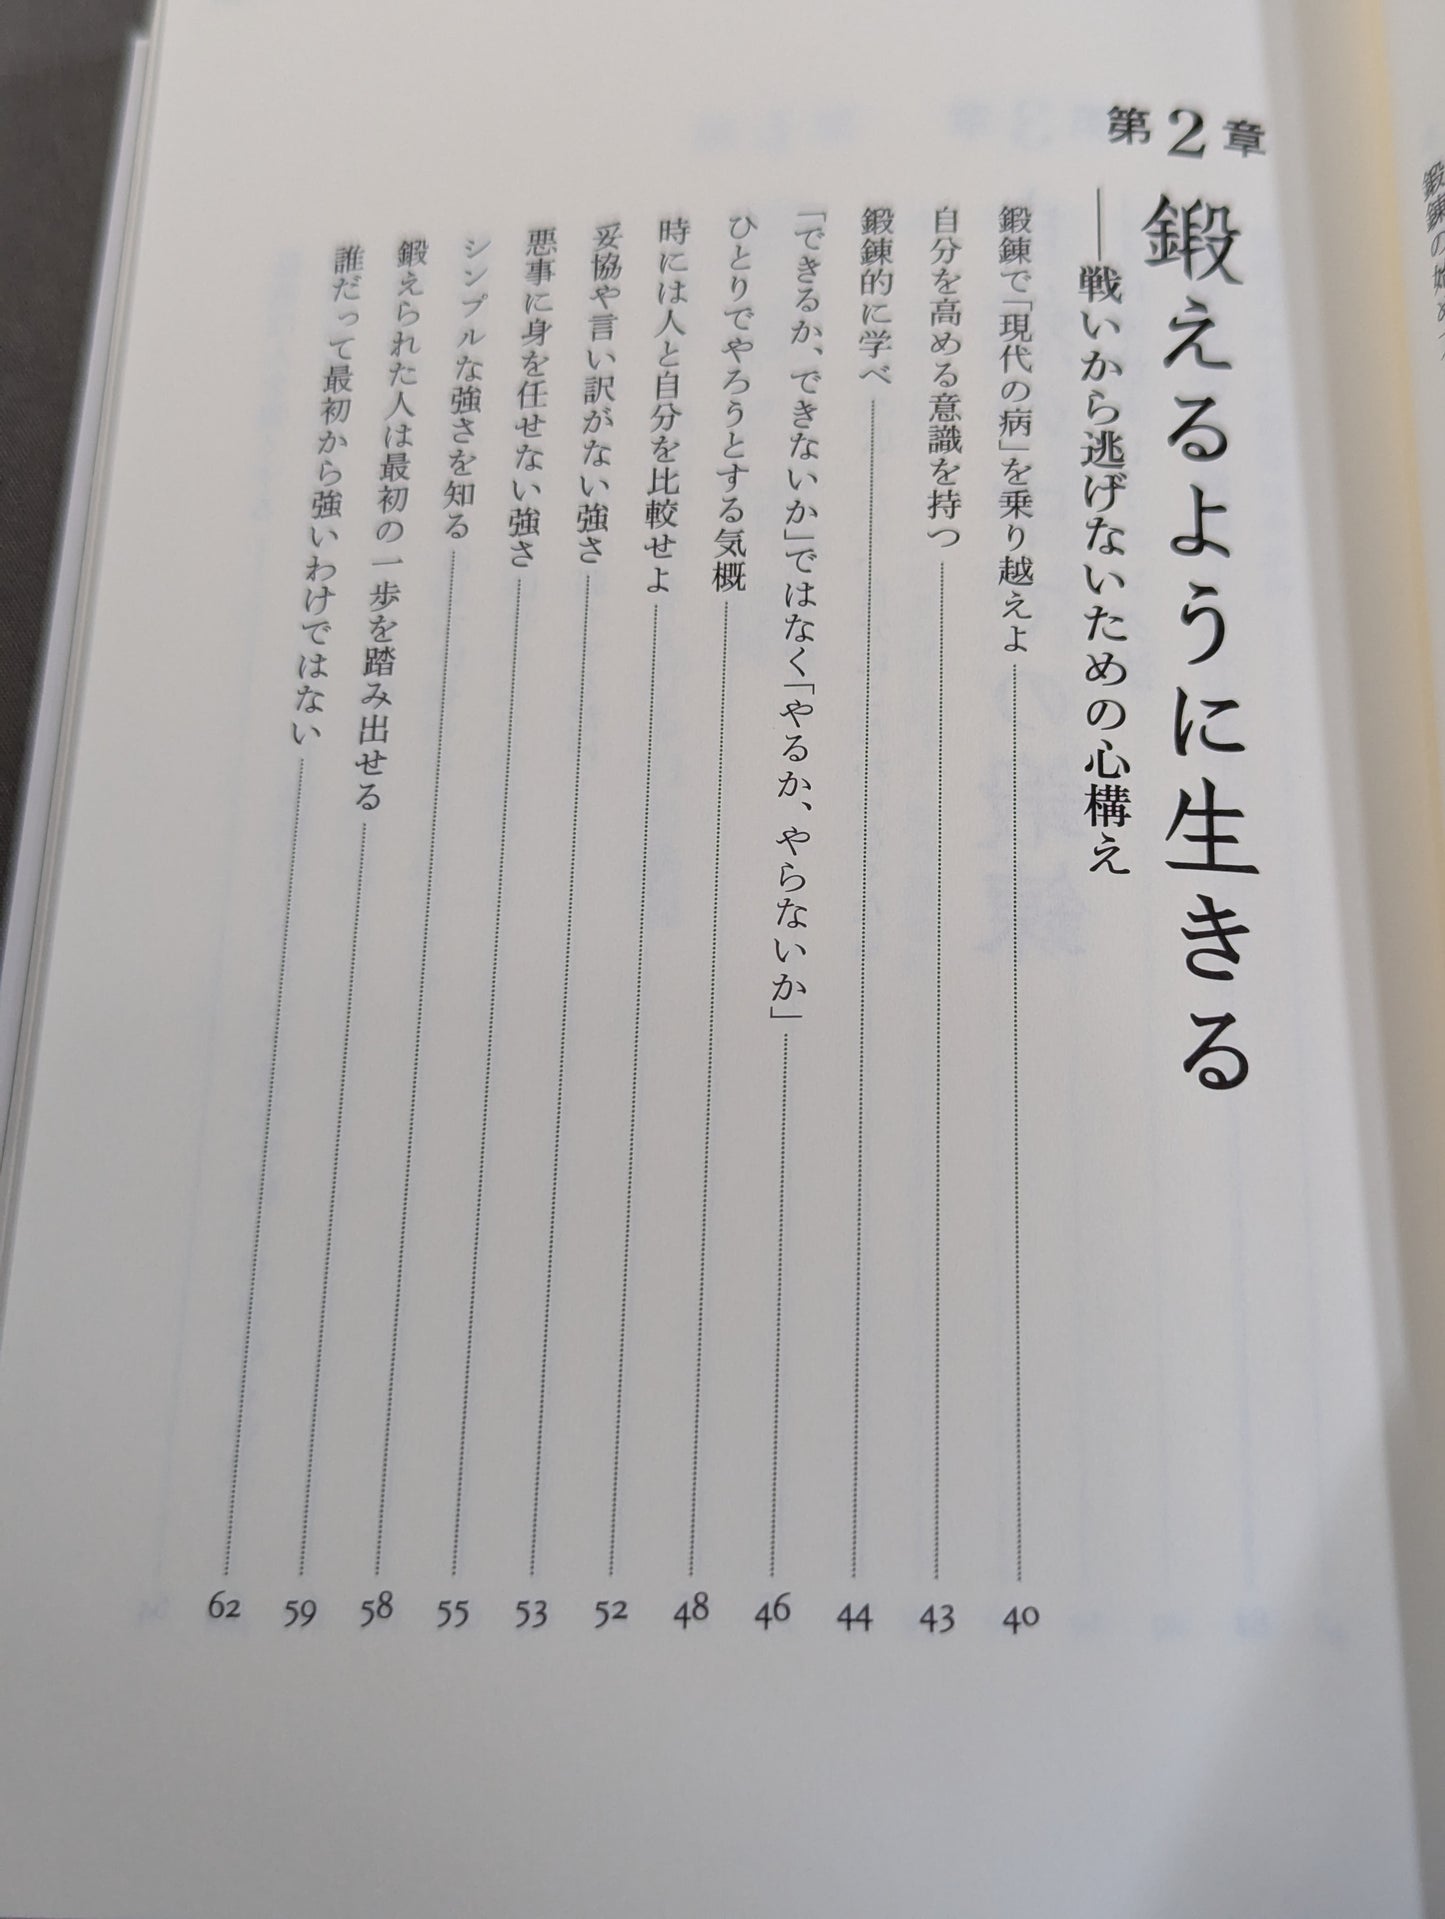 第2章 鍛えるように生きる
――戦いから逃げないための心構え
鍛錬で「現代の病」を乗り越えよ 40
自分を高める意識を持つ 43
鍛錬的に学べ 44
「できるか、できないか」ではなく「やるか、やらないか」 46
ひとりでやろうとする気概 48
時には人と自分を比較せよ 52
妥協や言い訳がない強さ 53
悪事に身を任せない強さ 55
シンプルな強さを知る 58
鍛えられた人は最初の一歩を踏み出せる 59
誰だって最初から強いわけではない 62